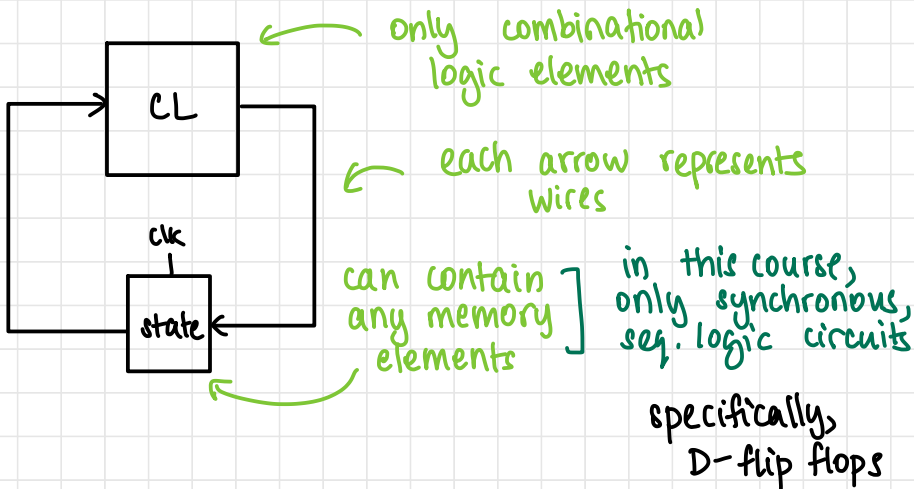 only combinational
logic elements
CL
each arrow represents
wires
clk
state
can contain
any memory
elements
in this course,
only synchronous,
seq. logic circuits
specifically,
D-flip flops